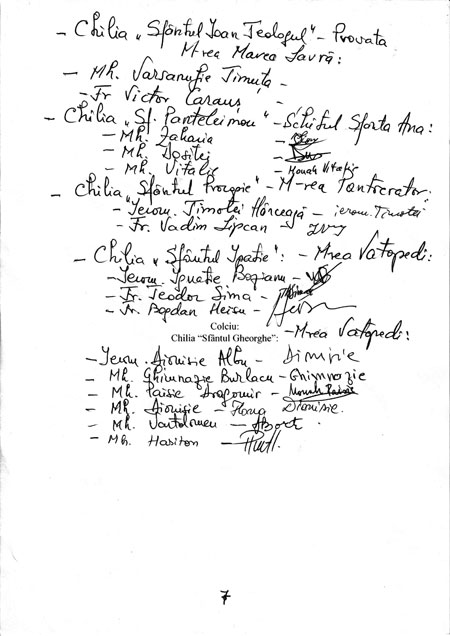 - Chilia „Sfântul Ioan Teologul" - Provata
M-rea Marea Lavră:
- Mh. Varsanufie Timuța -
- Fr Victor Caraus -
- Chilia „Sf. Panteleimon" - Schitul Sfânta Ana:
- Mh. Zaharia -
- Mh. Dositei -
- Mh. Vitalie - Monah Vitalie
- Chilia „Sfântul Procopie" - M-rea Pantocrator:
- Ierom. Timotei Hôrceagă - ierom. Timotei
- Fr. Vadim Lipcan -
- Chilia „Sfântul Ipatie": - M-rea Vatopedi:
- Ierom. Ignatie Bozianu -
- Fr. Teodor Sima -
- Fr. Bogdan Heisu -
Colciu:
Chilia "Sfântul Gheorghe": - M-rea Vatopedi:
- Ierom. Dionisie Albu - Dionisie
- Mh. Ghimnazie Burlacu - Ghimnazie
- Mh. Paisie Dragomir - Monah Paisie
- Mh. Dionisie - Dionisie.
- Mh. Vartolomeu -
- Mh. Hariton -
7